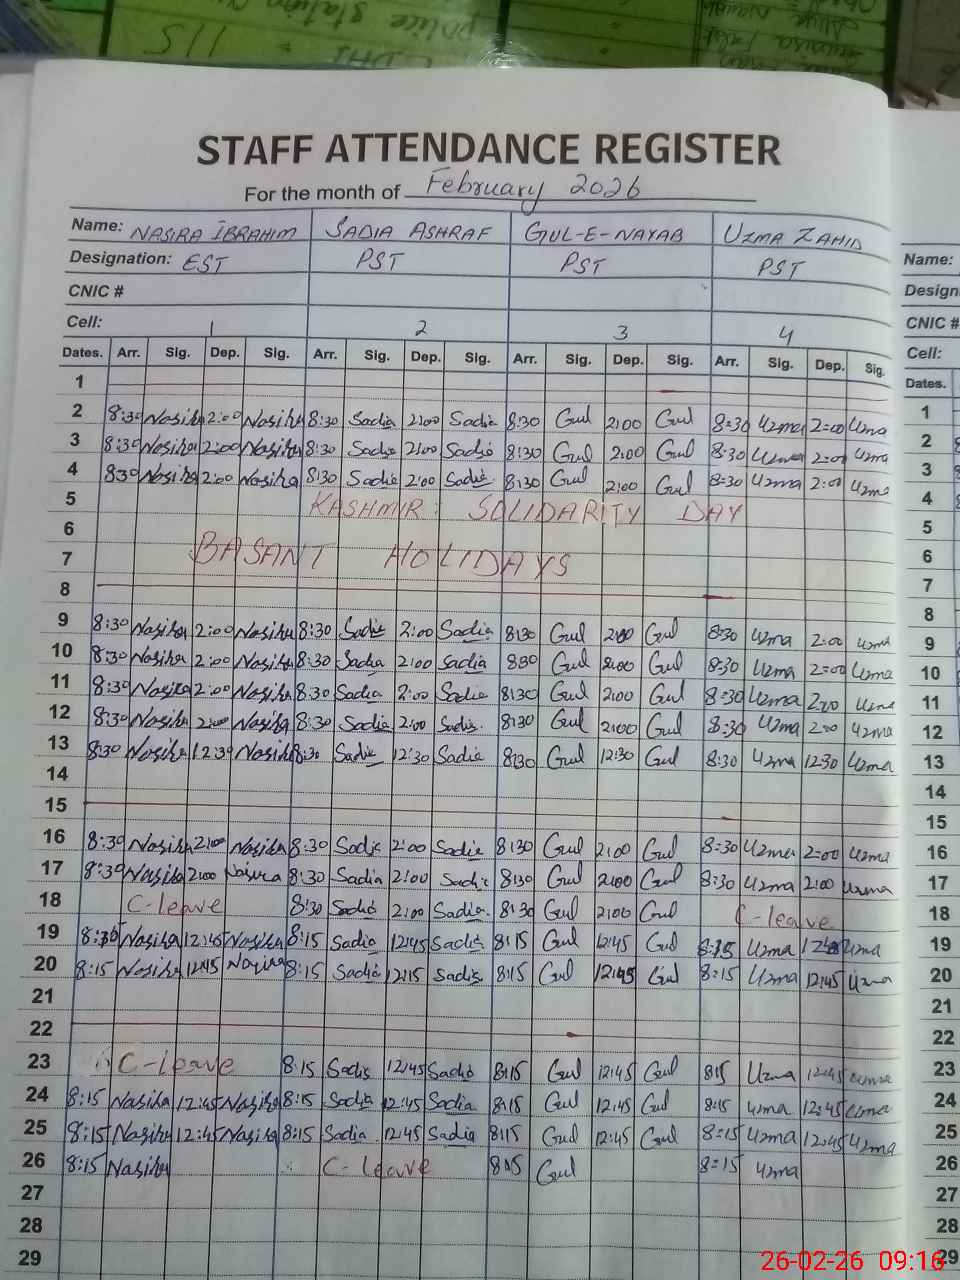 STAFF ATTENDANCE REGISTER
For the month of February 2026
Name: NASIRA IBRAHIM SADIA ASHRAF GUL-E-NAYAB UZMA ZAHID Name:
Designation: EST PST PST PST Design
CNIC # CNIC #
Cell: 1 2 3 4 Cell:
Dates. Arr. Sig. Dep. Sig. Arr. Sig. Dep. Sig. Arr. Sig. Dep. Sig. Arr. Sig. Dep. Sig. Dates.
1 1
2 8:30 Nasira 2:00 Nasira 8:30 Sadia 2:00 Sadia 8:30 Gul 2:00 Gul 8:30 Uzma 2:00 Uzma 2
3 8:30 Nasira 2:00 Nasira 8:30 Sadia 2:00 Sadia 8:30 Gul 2:00 Gul 8:30 Uzma 2:00 Uzma 3
4 830 Nasira 2:00 Nasira 8:30 Sadia 2:00 Sadia 8:30 Gul 2:00 Gul 8:30 Uzma 2:00 Uzma 4
5 KASHMIR: SOLIDARITY DAY 5
6 6
7 BASANT HOLIDAYS 7
8 8
9 8:30 Nasira 2:00 Nasira 8:30 Sadia 2:00 Sadia 8:30 Gul 2:00 Gul 8:30 Uzma 2:00 Uzma 9
10 8:30 Nasira 2:00 Nasira 8:30 Sadia 2:00 Sadia 8:30 Gul 2:00 Gul 8:30 Uzma 2:00 Uzma 10
11 8:30 Nasira 2:00 Nasira 8:30 Sadia 2:00 Sadia 8:30 Gul 2:00 Gul 8:30 Uzma 2:00 Uzma 11
12 8:30 Nasira 2:00 Nasira 8:30 Sadia 2:00 Sadia. 8:30 Gul 2:00 Gul 8:30 Uzma 2:00 Uzma 12
13 8:30 Nasira 12:30 Nasira 8:30 Sadia 12:30 Sadia 8:30 Gul 12:30 Gul 8:30 Uzma 12:30 Uzma 13
14 14
15 15
16 8:30 Nasira 2:00 Nasira 8:30 Sadia 2:00 Sadia 8:30 Gul 2:00 Gul 8:30 Uzma 2:00 Uzma 16
17 8:30 Nasira 2:00 Nasira 8:30 Sadia 2:00 Sadia 8:30 Gul 2:00 Gul 8:30 Uzma 2:00 Uzma 17
18 C-leave 8:30 Sadia 2:00 Sadia. 8:30 Gul 2:00 Gul C-leave 18
19 Nasira 12:45 Nasira 8:15 Sadia 12:45 Sadia 8:15 Gul 12:45 Gul 8:15 Uzma Uzma 19
20 8:15 Nasira 12:15 Nasira 8:15 Sadia 12:15 Sadia 8:15 Gul 12:45 Gul 8:15 Uzma 12:45 Uzma 20
21 21
22 22
23 C-leave 8:15 Sadia 12:45 Sadia 8:15 Gul 12:45 Gul 815 Uzma 12:45 Uzma 23
24 8:15 Nasira 12:45 Nasira 8:15 Sadia 12:45 Sadia 8:15 Gul 12:45 Gul 8:15 Uzma 12:45 Uzma 24
25 8:15 Nasira 12:45 Nasira 8:15 Sadia 12:45 Sadia 8:15 Gul 12:45 Gul 8:15 Uzma 12:45 Uzma 25
26 8:15 Nasira C-leave 8:15 Gul 8:15 Uzma 26
27 27
28 28
29 29
26-02-26 09:16